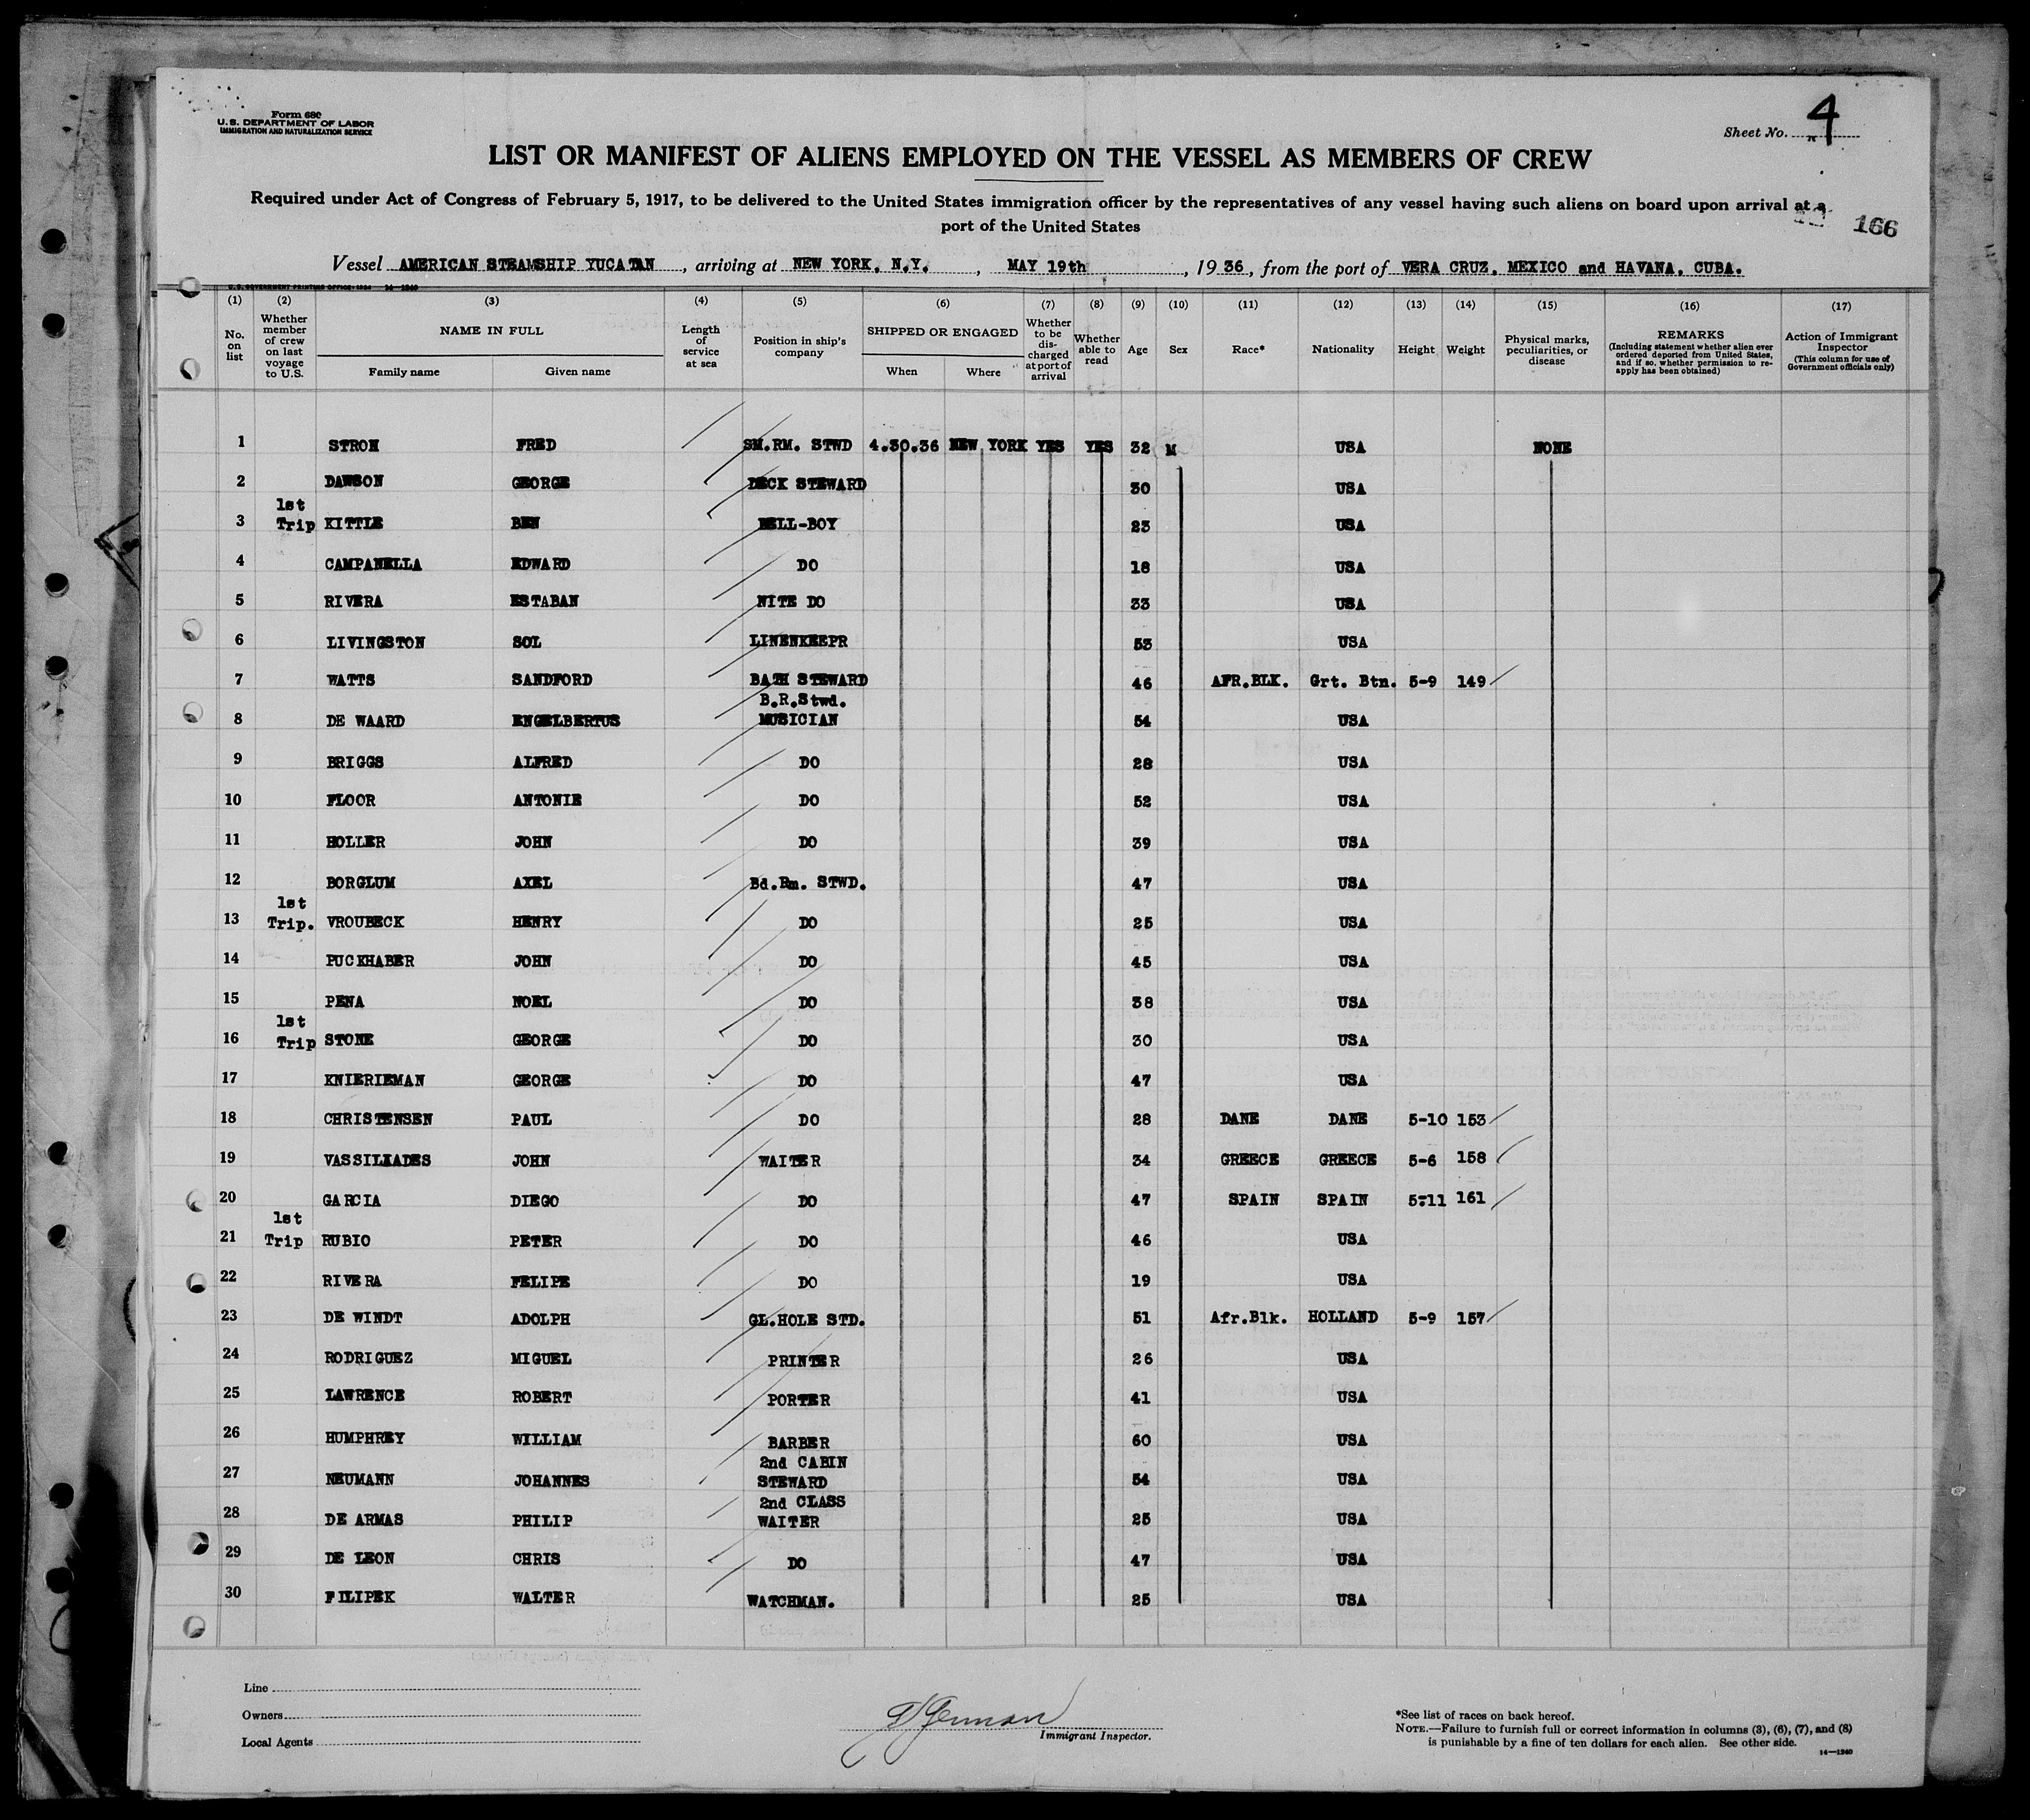 Form 680
U.S. DEPARTMENT OF LABOR
IMMIGRATION AND NATURALIZATION SERVICE
Sheet No. 4
LIST OR MANIFEST OF ALIENS EMPLOYED ON THE VESSEL AS MEMBERS OF CREW
Required under Act of Congress of February 5, 1917, to be delivered to the United States immigration officer by the representatives of any vessel having such aliens on board upon arrival at a
port of the United States
166
Vessel AMERICAN STEAMSHIP YUCATAN, arriving at NEW YORK, N.Y., MAY 19th, 1936, from the port of VERA CRUZ, MEXICO and HAVANA, CUBA.
U.S. GOVERNMENT PRINTING OFFICE: 1934 14—1240
(1) (2) (3) (4) (5) (6) (7) (8) (9) (10) (11) (12) (13) (14) (15) (16) (17)
No. on list
Whether member of crew on last voyage to U.S.
NAME IN FULL
Family name Given name
Length of service at sea
Position in ship's company
SHIPPED OR ENGAGED
When Where
Whether to be discharged at port of arrival
Whether able to read
Age
Sex
Race*
Nationality
Height
Weight
Physical marks, peculiarities, or disease
REMARKS
(Including statement whether alien ever ordered deported from United States, and if so, whether permission to re-apply has been obtained)
Action of Immigrant Inspector
(This column for use of Government officials only)
1 STROH FRED SM.RM. STWD 4.30.36 NEW YORK YES YES 32 M USA NONE
2 DAWSON GEORGE DECK STEWARD 30 USA
3 1st Trip KITTLE BEN BELL-BOY 23 USA
4 CAMPANELLA EDWARD DO 18 USA
5 RIVERA ESTABAN NITE DO 33 USA
6 LIVINGSTON SOL LINENKEEPR 53 USA
7 WATTS SANDFORD BATH STEWARD 46 AFR.BLK. Grt. Btn. 5-9 149
8 DE WAARD ENGELBERTUS B.R.Stwd. MUSICIAN 54 USA
9 BRIGGS ALFRED DO 28 USA
10 FLOOR ANTONIE DO 52 USA
11 HOLLER JOHN DO 39 USA
12 BORGLUM AXEL Bd.Rm. STWD. 47 USA
13 1st Trip. VROUBECK HENRY DO 25 USA
14 PUCKHABER JOHN DO 45 USA
15 PENA NOEL DO 38 USA
16 1st Trip STONE GEORGE DO 30 USA
17 KNIERIEMAN GEORGE DO 47 USA
18 CHRISTENSEN PAUL DO 28 DANE DANE 5-10 153
19 VASSILIADES JOHN WAITER 34 GREECE GREECE 5-6 158
20 GARCIA DIEGO DO 47 SPAIN SPAIN 5-11 161
21 1st Trip RUBIO PETER DO 46 USA
22 RIVERA FELIPE DO 19 USA
23 DE WINDT ADOLPH GL.HOLE STD. 51 Afr.Blk. HOLLAND 5-9 157
24 RODRIGUEZ MIGUEL PRINTER 26 USA
25 LAWRENCE ROBERT PORTER 41 USA
26 HUMPHREY WILLIAM BARBER 60 USA
27 NEUMANN JOHANNES 2nd CABIN STEWARD 54 USA
28 DE ARMAS PHILIP 2nd CLASS WAITER 25 USA
29 DE LEON CHRIS DO 47 USA
30 FILIPEK WALTER WATCHMAN. 25 USA
Line
Owners
Local Agents
Immigrant Inspector.
*See list of races on back hereof.
NOTE.—Failure to furnish full or correct information in columns (3), (6), (7), and (8)
is punishable by a fine of ten dollars for each alien. See other side.
14—1240